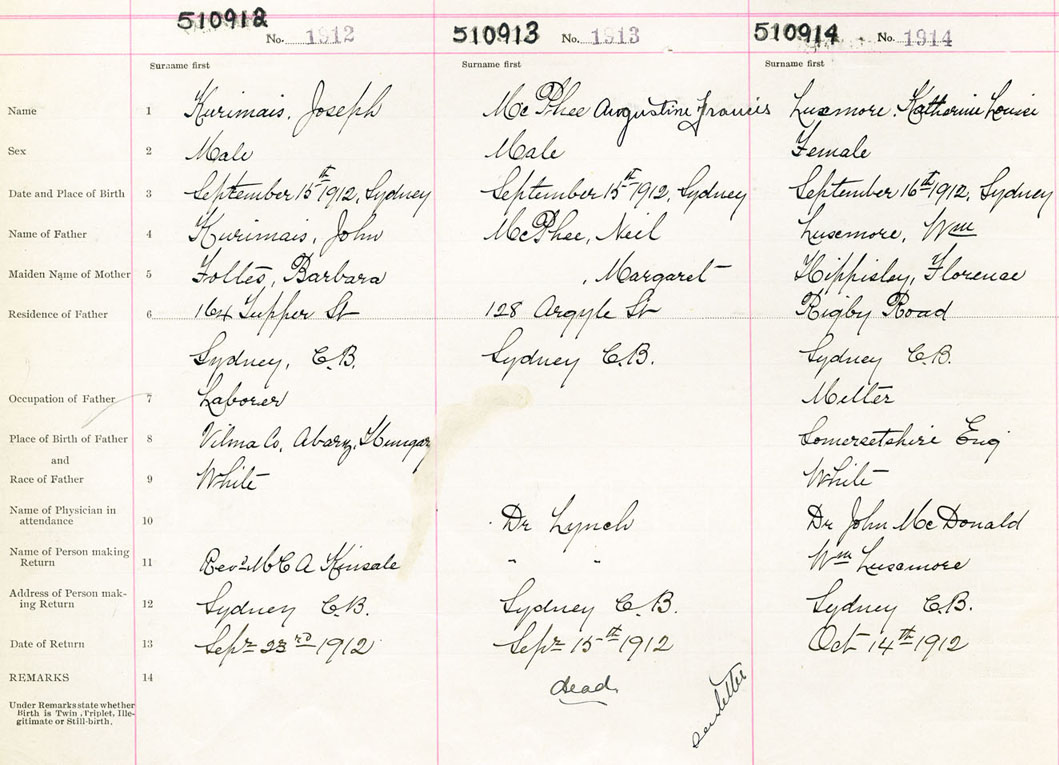 510912 No. 1912 510913 No. 1913 510914 No. 1914
Surname first Surname first Surname first
Name 1 Kurimais, Joseph McPhee Augustine Francis Luxemore, Katherine Louise
Sex 2 Male Male Female
Date and Place of Birth 3 September 15th 1912, Sydney September 15th 1912, Sydney September 16th 1912, Sydney
Name of Father 4 Kurimais, John McPhee, Neil Luxemore, Wm
Maiden Name of Mother 5 Foltes, Barbara , Margaret Hippisley, Florence
Residence of Father 6 164 Tupper St 128 Argyle St Rigby Road
Sydney, C.B. Sydney C.B. Sydney C.B.
Occupation of Father 7 Laborer Melter
Place of Birth of Father 8 Vilma Co, Hungary Somersetshire Eng
and
Race of Father 9 White White
Name of Physician in
attendance 10 Dr Lynch Dr John McDonald
Name of Person making
Return 11 Revd M C A Kinsale " " Wm Luxemore
Address of Person mak-
ing Return 12 Sydney C.B. Sydney C.B. Sydney C.B.
Date of Return 13 Sept 23rd 1912 Sept 15th 1912 Oct 14th 1912
REMARKS 14 dead
see letter
Under Remarks state whether
Birth is Twin, Triplet, Ille-
gitimate or Still-birth.